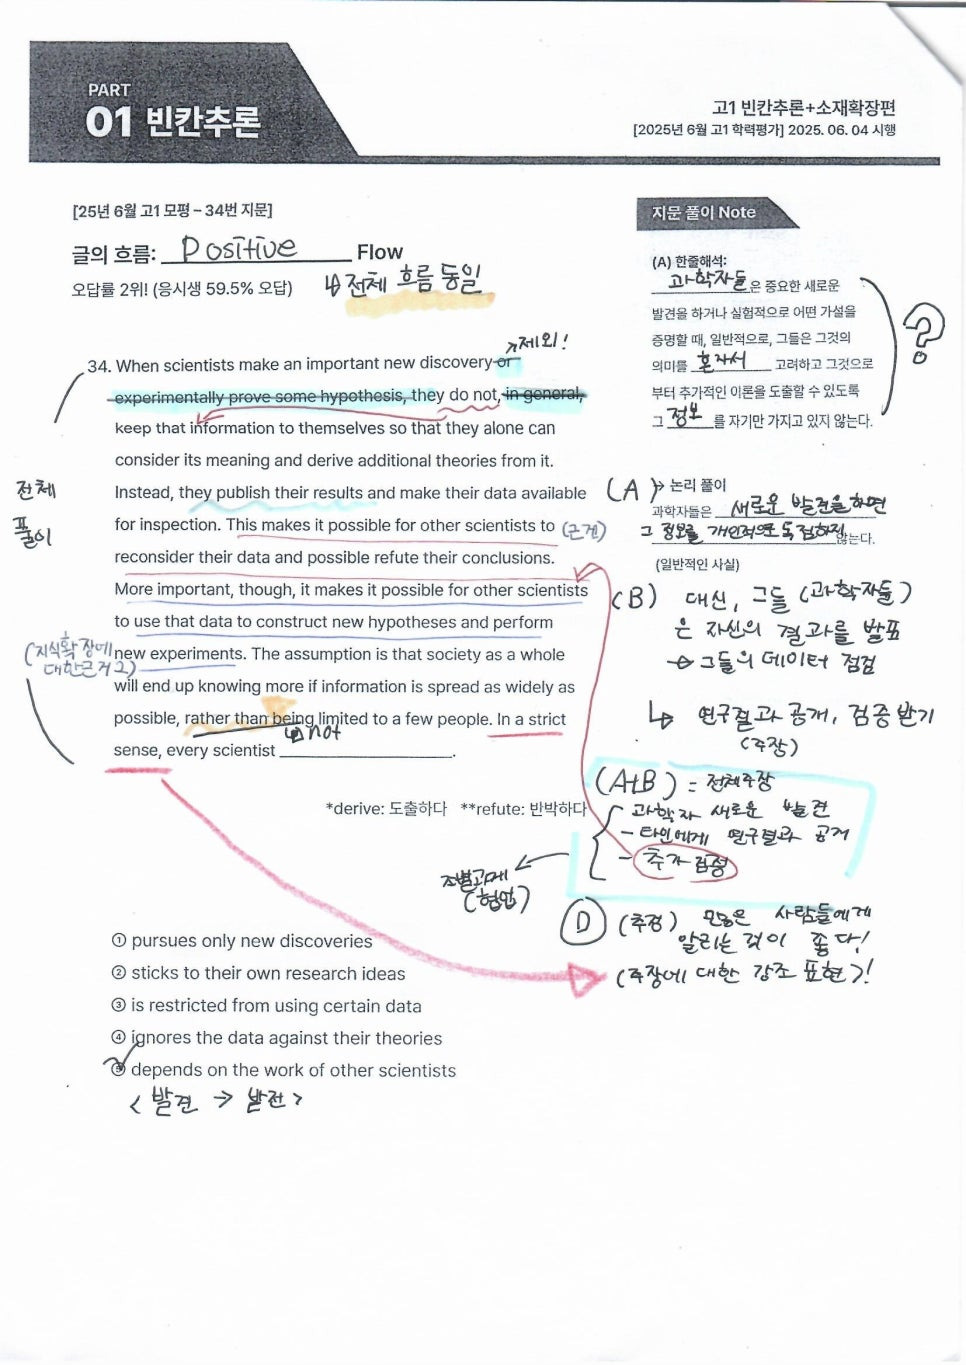 PART
01 빈칸추론
고1 빈칸추론+소재확장편
[2025년 6월 고1 학력평가] 2025. 06. 04 시행
[25년 6월 고1 모평 – 34번 지문]
글의 흐름: Positive Flow
오답률 2위! (응시생 59.5% 오답)
↳ 전체 흐름 동일
↗제외!
34. When scientists make an important new discovery or
experimentally prove some hypothesis, they do not, in general,
keep that information to themselves so that they alone can
consider its meaning and derive additional theories from it.
Instead, they publish their results and make their data available
for inspection. This makes it possible for other scientists to (근거)
reconsider their data and possible refute their conclusions.
More important, though, it makes it possible for other scientists
to use that data to construct new hypotheses and perform
new experiments. The assumption is that society as a whole
will end up knowing more if information is spread as widely as
possible, rather than being limited to a few people. In a strict
↳ not
sense, every scientist ____________________.
전체
풀이
(지식확장에
대한근거2)
*derive: 도출하다 **refute: 반박하다
① pursues only new discoveries
② sticks to their own research ideas
③ is restricted from using certain data
④ ignores the data against their theories
⑤ depends on the work of other scientists
< 발견 → 발전 >
지문 풀이 Note
(A) 한줄해석:
과학자들은 중요한 새로운
발견을 하거나 실험적으로 어떤 가설을
증명할 때, 일반적으로, 그들은 그것의
의미를 혼자서 고려하고 그것으로
부터 추가적인 이론을 도출할 수 있도록
그 정보를 자기만 가지고 있지 않는다.
?
(A) 논리 풀이
과학자들은 새로운 발견을하면
그 정보를 개인적으로 독점하지 않는다.
(일반적인 사실)
(B) 대신, 그들 (과학자들)
은 자신의 결과를 발표
→ 그들의 데이터 점검
↳ 연구결과 공개, 검증 받기
(주장)
(A+B) = 전체주장
과학자 새로운 발견
- 타인에게 연구결과 공개
- 추가 검정
조별과제
(협업)
D (추정) 많은 사람들에게
알리는 것이 좋다!
(주장에 대한 강조 표현)!